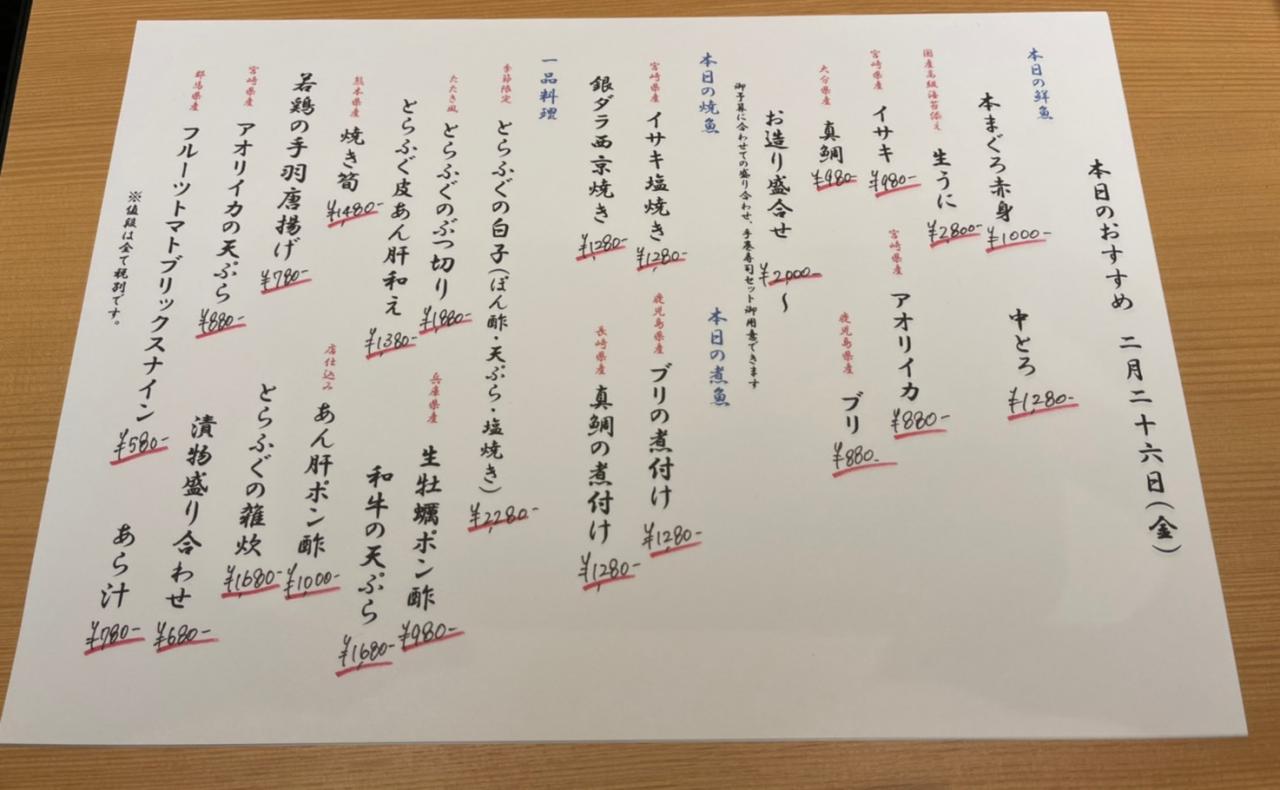 本日のおすすめ 二月二十六日(金)
本日の鮮魚
本まぐろ赤身 ¥1000-
中とろ ¥1,280-
国産高級海苔添え 生うに ¥2,800-
宮崎県産 イサキ ¥980-
宮崎県産 アオリイカ ¥880-
大分県産 真鯛 ¥980-
鹿児島県産 ブリ ¥880-
お造り盛合せ ¥2,000-~
御予算に合わせての盛り合わせ、手巻寿司セット御用意できます
本日の焼魚
宮崎県産 イサキ塩焼き ¥1,280-
銀ダラ西京焼き ¥1,280-
本日の煮魚
鹿児島県産 ブリの煮付け ¥1,280-
長崎県産 真鯛の煮付け ¥1,280-
一品料理
季節限定 とらふぐの白子(ぽん酢・天ぷら・塩焼き) ¥2,280-
たたき風 とらふぐのぶつ切り ¥1,880-
兵庫県産 生牡蠣ポン酢 ¥980-
とらふぐ皮あん肝和え ¥1,380-
和牛の天ぷら ¥1,680-
熊本県産 焼き筍 ¥1,480-
店仕込み あん肝ポン酢 ¥1,000-
若鶏の手羽唐揚げ ¥780-
とらふぐの雑炊 ¥1,680-
宮崎県産 アオリイカの天ぷら ¥880-
漬物盛り合わせ ¥680-
群馬県産 フルーツトマトブリックスナイン ¥580-
あら汁 ¥780-
※値段は全て税別です。